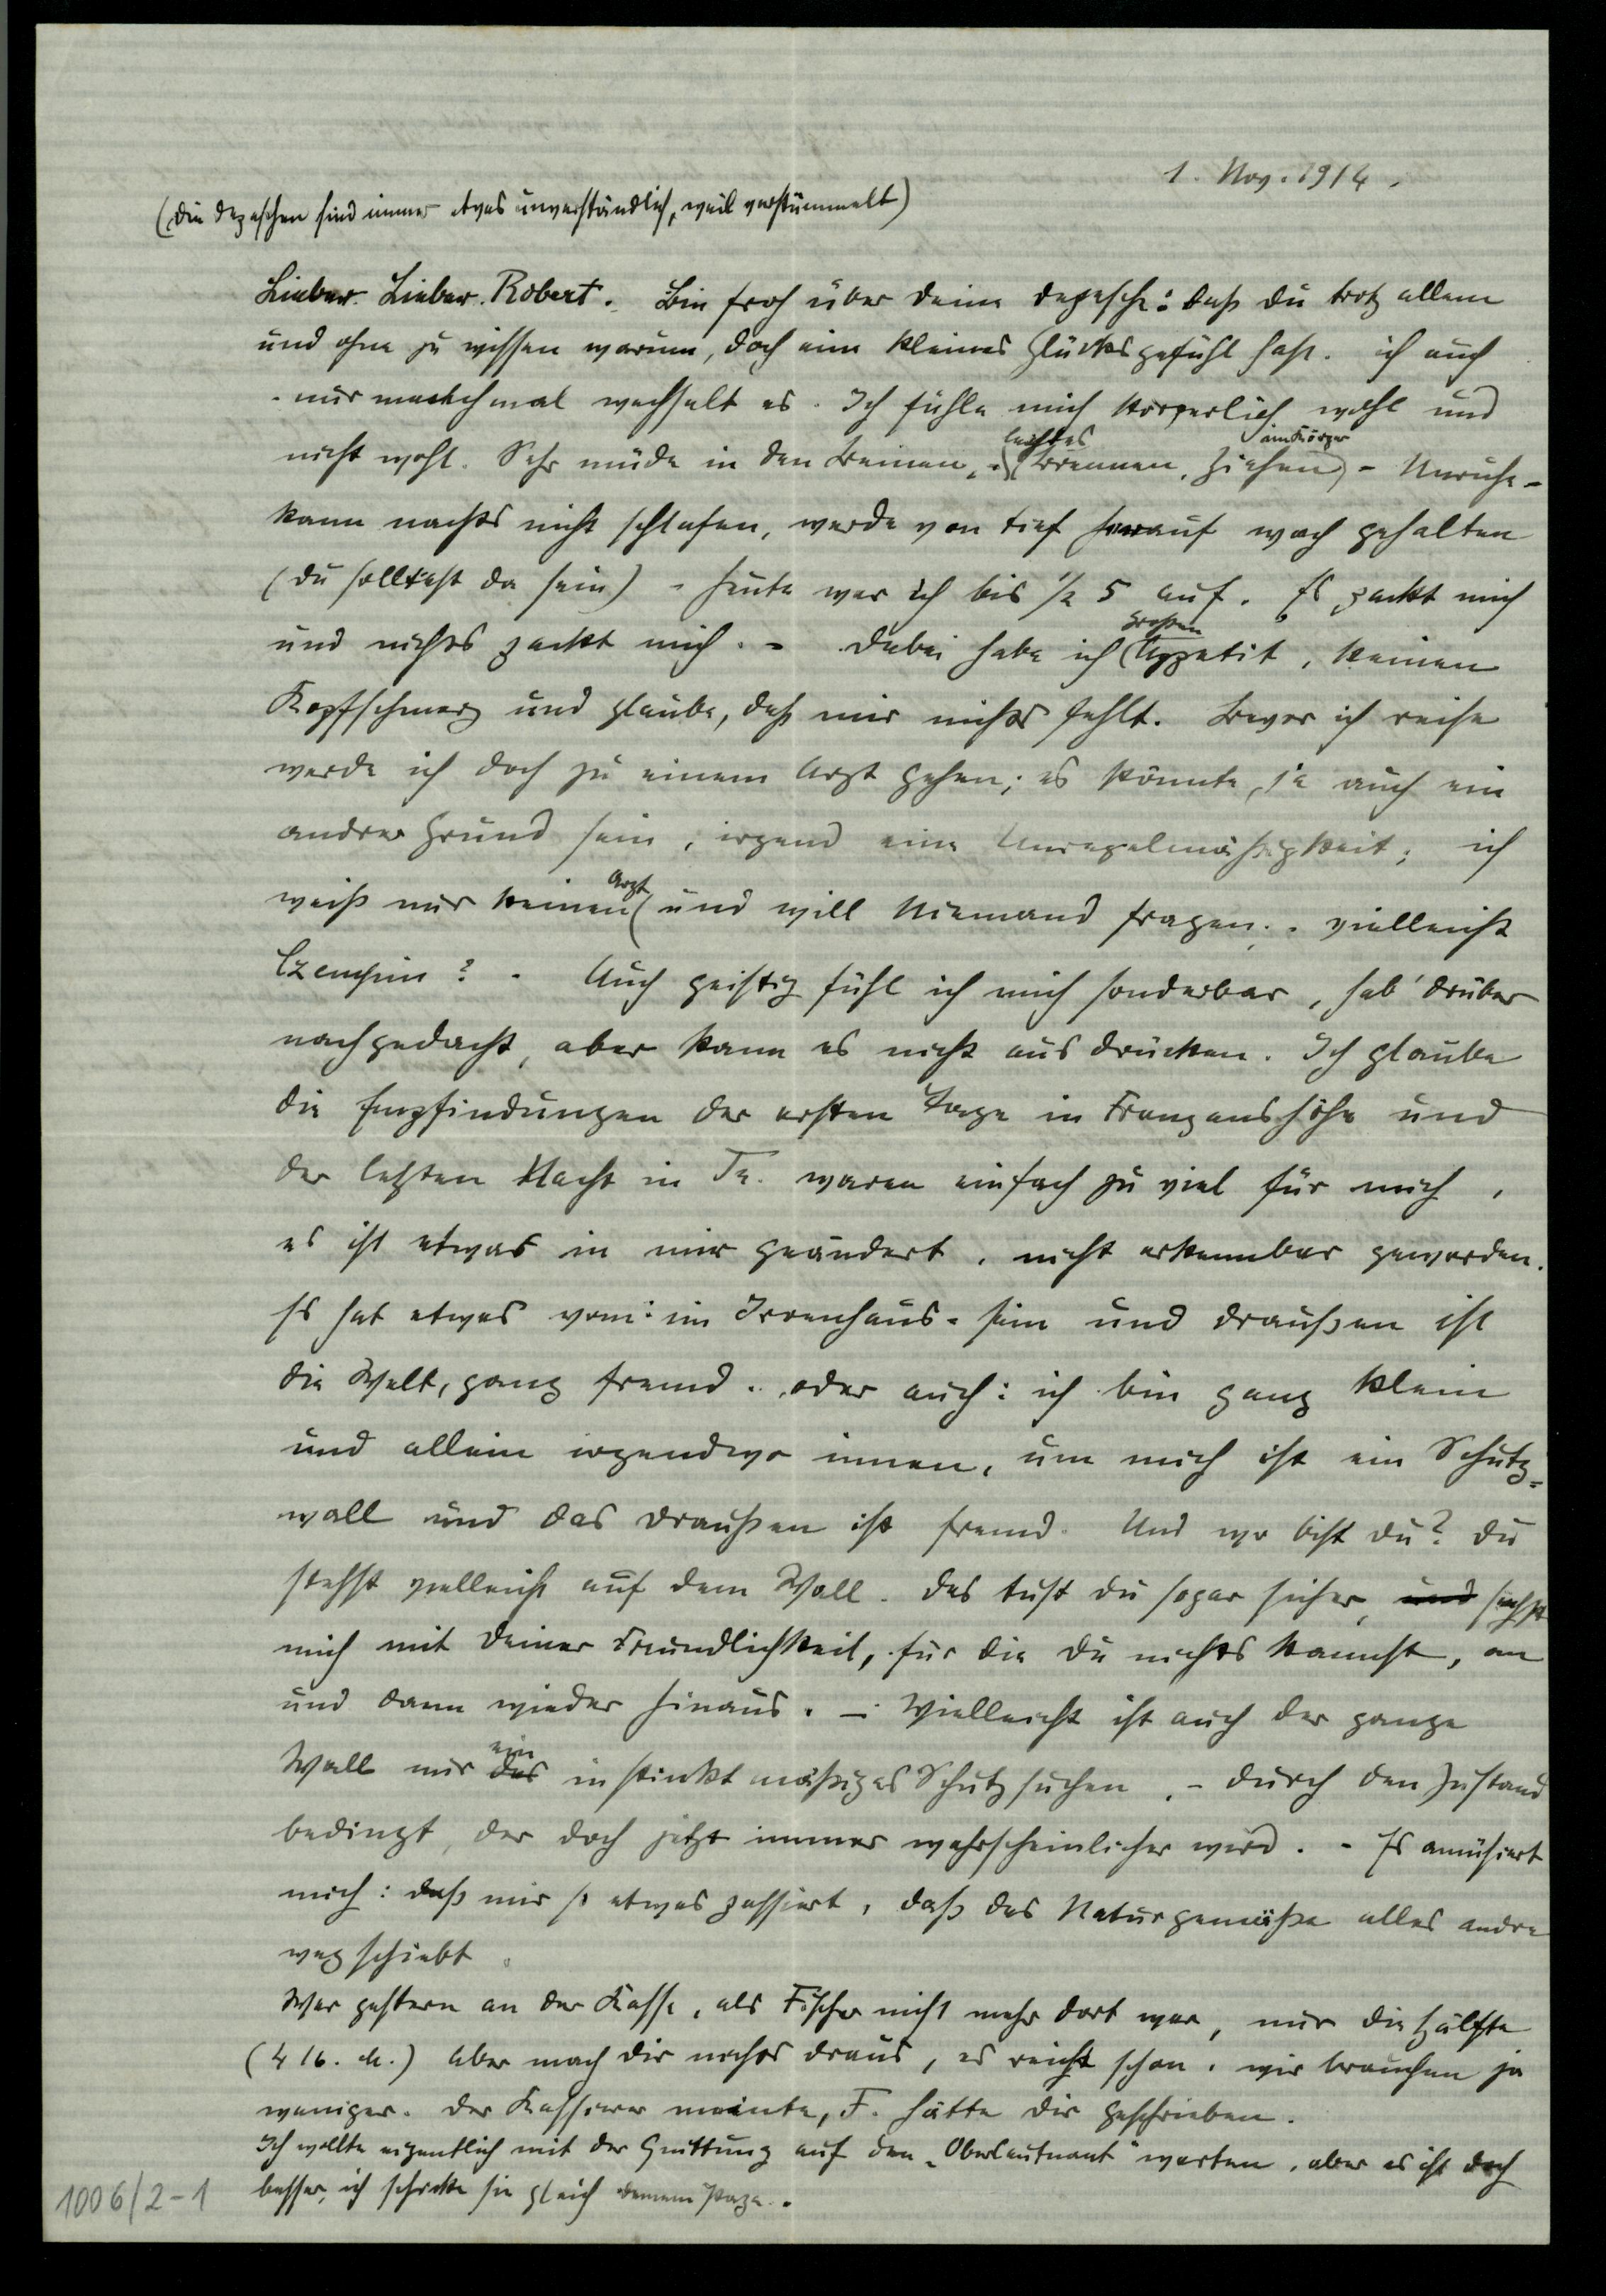 1. Nov. 1914.
(Die Depeschen sind immer etwas unverständlich, weil verstümmelt)
Lieber. Lieber. Robert. Bin froh über deine Depesche: daß du trotz allem
und ohne zu wissen warum, doch ein kleines Glücksgefühl hast. ich auch
- nur manchmal wechselt es. Ich fühle mich körperlich wohl und
nicht wohl. Sehr müde in den Beinen, - (leichtes Brennen, Ziehen im Körper) - Unruhe -
kann nachts nicht schlafen, werde von tief herauf wach gehalten
(du solltest da sein) - heute war ich bis 1/2 5 auf. Es packt mich
und nichts packt mich. - Dabei habe ich großen Appetit, keinen
Kopfschmerz und glaube, daß mir nichts fehlt. Bevor ich reise
werde ich doch zu einem Arzt gehen; es könnte, ja auch ein
andrer Grund sein, irgend eine Unregelmäßigkeit; ich
weiß nur keinen Arzt und will Niemand fragen. - vielleicht
Czempin? - Auch geistig fühl ich mich sonderbar, hab' drüber
nachgedacht, aber kann es nicht ausdrücken. Ich glaube
die Empfindungen der ersten Tage in Franzenshöhe und
der letzten Nacht in Tr. waren einfach zu viel für mich,
es ist etwas in mir geändert, nicht erkennbar geworden.
Es hat etwas vom: im Irrenhaus-sein und draußen ist
die Welt, ganz fremd. oder auch: ich bin ganz klein
und allein irgendwo innen, um mich ist ein Schutz-
wall und das draußen ist fremd. Und wo bist du? Du
stehst vielleicht auf dem Wall. Das tust du sogar sicher, und siehst
mich mit deiner Freundlichkeit, für die du nichts kannst, an
und dann wieder hinaus. - Vielleicht ist auch der ganze
Wall nur das ein instinktmäßiges Schutzsuchen, - durch den Zustand
bedingt, der doch jetzt immer wahrscheinlicher wird. - Es amüsiert
mich: daß mir so etwas passiert, daß das Naturgemäße alles andre
wegschiebt.
War gestern an der Kasse, als Fischer nicht mehr dort war, nur die Hälfte
(416. M.) Aber mach dir nichts draus, es reicht schon. wir brauchen ja
weniger. Der Kassierer meinte, F. hätte dir geschrieben.
Ich wollte eigentlich mit der Quittung auf den „Oberleutnant" warten, aber es ist doch
besser, ich schicke sie gleich deinem Papa.
1006/2-1